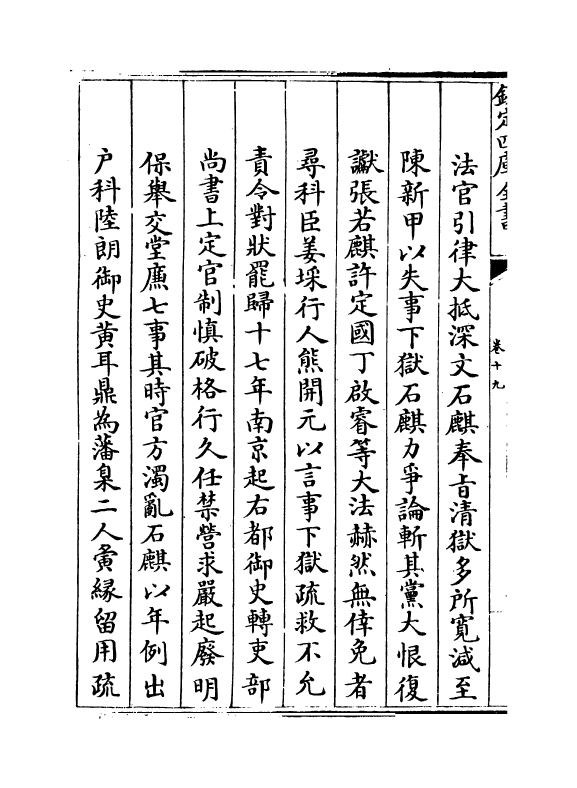 欽定四庫全書
卷十九
法官引律大抵深文石麒奉㫖清獄多所寛减至
陳新甲以失事下獄石麒力爭論斬其黨大恨復
讞張若麒許定國丁啟睿等大法赫然無倖免者
尋科臣姜埰行人熊開元以言事下獄疏救不允
責令對狀罷歸十七年南京起右都御史轉吏部
尚書上定官制慎破格行久任禁營求嚴起廢明
保舉交堂廉七事其時官方濁亂石麒以年例出
户科陸朗御史黄耳鼎為藩臬二人夤縁留用疏